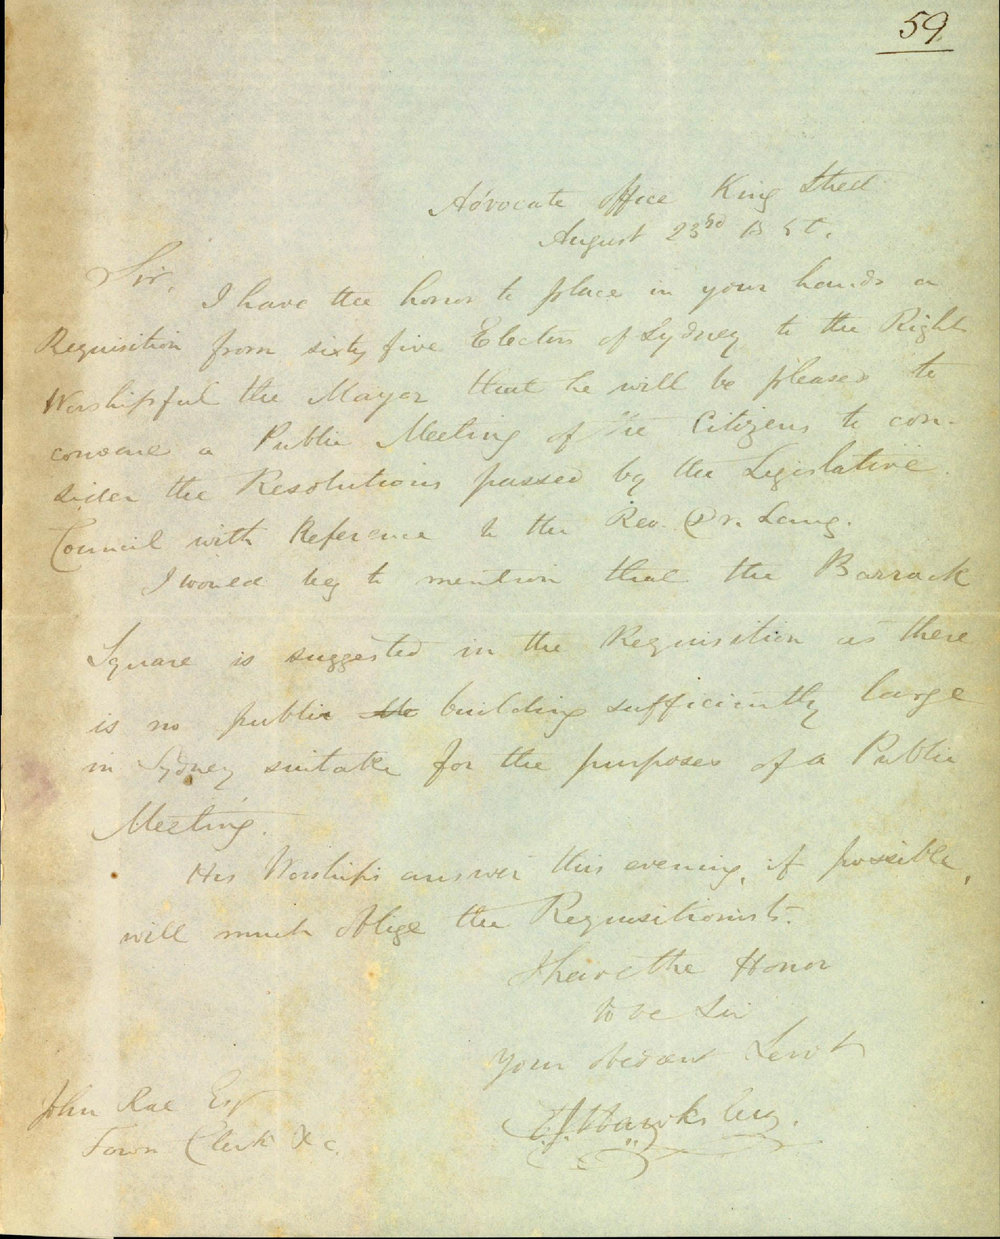 59
Advocate Office King Street
August 23rd 18
Sir,
I have the honor to place in your hands a
Requisition from sixty five Electors of Sydney to the Right
Worshipful the Mayor that he will be pleased to
convene a Public Meeting of the Citizens to con-
sider the Resolutions passed by the Legislative
Council with Reference to the Rev. Dr. Lang.
I would beg to mention that the Barrack
Square is suggested in the Requisition as there
is no public building sufficiently large
in Sydney suitable for the purposes of a Public
Meeting.
His Worship's answer this evening, if possible,
will much oblige the Requisitionists.
I have the Honor
to be Sir
Your obedient Servt
E.J. Hawksley.
John Rae Esq
Town Clerk &c.